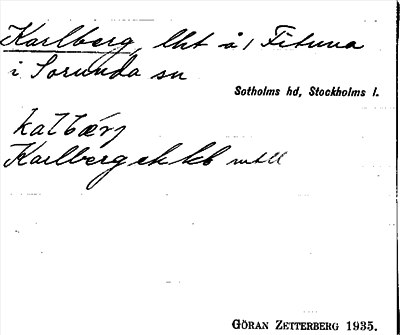 Karlberg, lht å/ Fituna
i Sorunda sn
Sotholms hd, Stockholms l.
Karlberg ek kb
GÖRAN ZETTERBERG 1935.